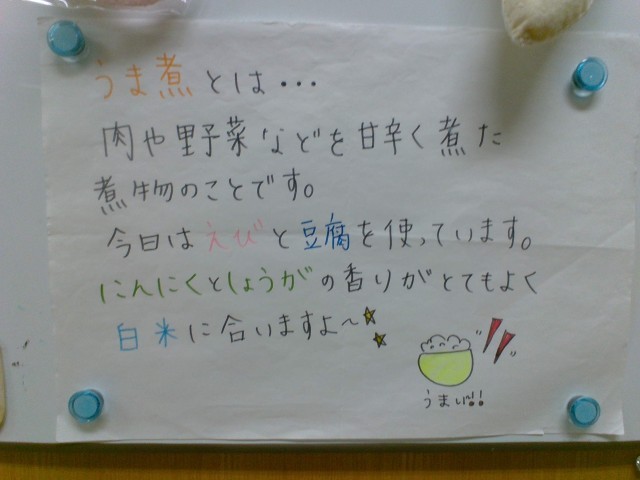 うま煮とは・・・
肉や野菜などを甘辛く煮た
煮物のことです。
今日はえびと豆腐を使っています。
にんにくとしょうがの香りがとてもよく
白米に合いますよ～
うまい!!